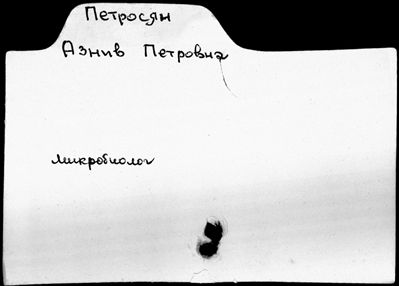 Петросян
Азнив Петровна
микробиолог